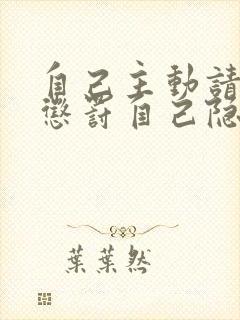 自己主動請
懲罰自己隐
葉葉然